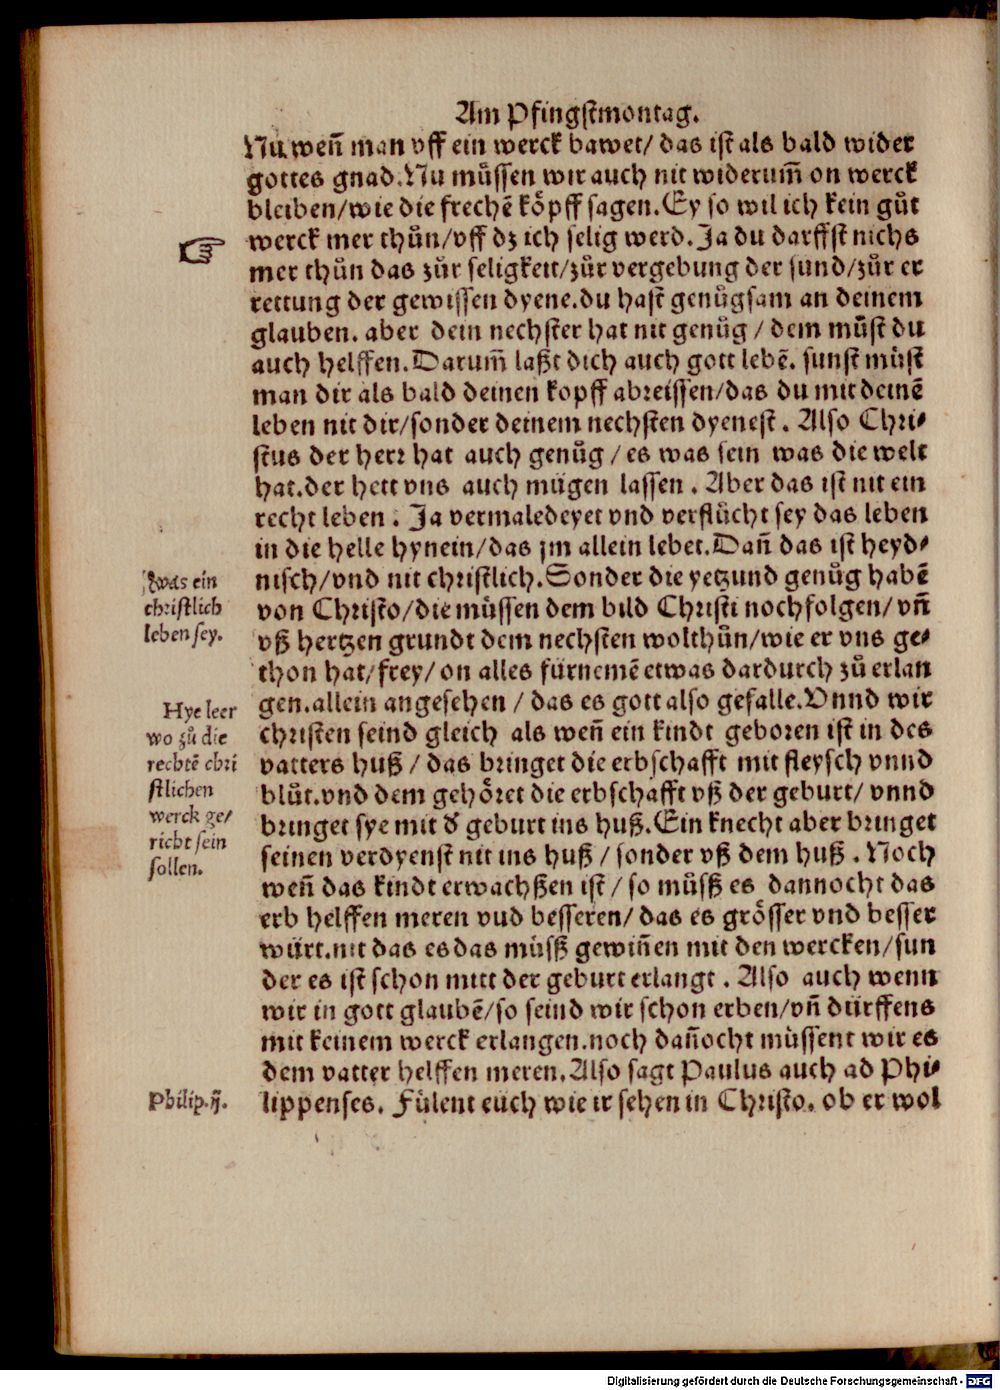 Am Pfingstmontag.
Nu wen̄ man vff ein werck bawet/ das ist als bald wider
gottes gnad. Nu müssen wir auch nit widerum̄ on werck
bleiben/wie die frechē köpff sagen. Ey so wil ich kein gůt
☞ werck mer thůn/vff dz ich selig werd. Ja du darffst nichs
mer thůn das zůr seligkeit/zůr vergebung der sünd/zůr er
rettung der gewissen dyene. du hast genůgsam an deinem
glauben. aber dein nechster hat nit genůg / dem můst du
auch helffen. Darum̄ laßt dich auch gott lebē. sunst müst
man dir als bald deinen kopff abreissen/das du mit deinē
leben nit dir/sonder deinem nechsten dyenest. Also Chri⸗
stus der herr hat auch genůg / es was sein was die welt
hat. der hett vns auch mügen lassen. Aber das ist nit ein
recht leben. Ja vermaledeyet vnd verflůcht sey das leben
in die helle hynein/das jm allein lebet. Dan̄ das ist heyd⸗
nisch/vnd nit christlich. Sonder die yetzund genůg habē
von Christo/die müssen dem bild Christi nochfolgen/ vn̄
vß hertzen grundt dem nechsten wolthůn/wie er vns ge⸗
thon hat/frey/ on alles fürnemē etwas dardurch zů erlan
gen. allein angesehen / das es gott also gefalle. Vnnd wir
christen seind gleich als wen̄ ein kindt geboren ist in des
vatters huß / das bringet die erbschafft mit fleysch vnnd
blůt. vnd dem gehöret die erbschafft vß der geburt/ vnnd
bringet sye mit ð geburt ins huß. Ein knecht aber bringet
seinen verdyenst nit ins huß / sonder vß dem huß. Noch
wen̄ das kindt erwachßen ist / so můsß es dannocht das
erb helffen meren vnd besseren/ das es grösser vnd besser
würt. nit das es das můsß gewin̄en mit den wercken/sun
der es ist schon mitt der geburt erlangt. Also auch wenn
wir in gott glaubē/so seind wir schon erben/vn̄ dürffens
mit keinem werck erlangen. noch dan̄ocht müssent wir es
dem vatter helffen meren. Also sagt Paulus auch ad Phi⸗
lippenses. Fülent euch wie ir sehen in Christo. ob er wol
Was ein
christlich
leben sey.
Hye leer
wo zů die
rechtē chri
stlichen
werck ge/
richt sein
sollen.
Philip. ij.
Digitalisierung gefördert durch die Deutsche Forschungsgemeinschaft - DFG